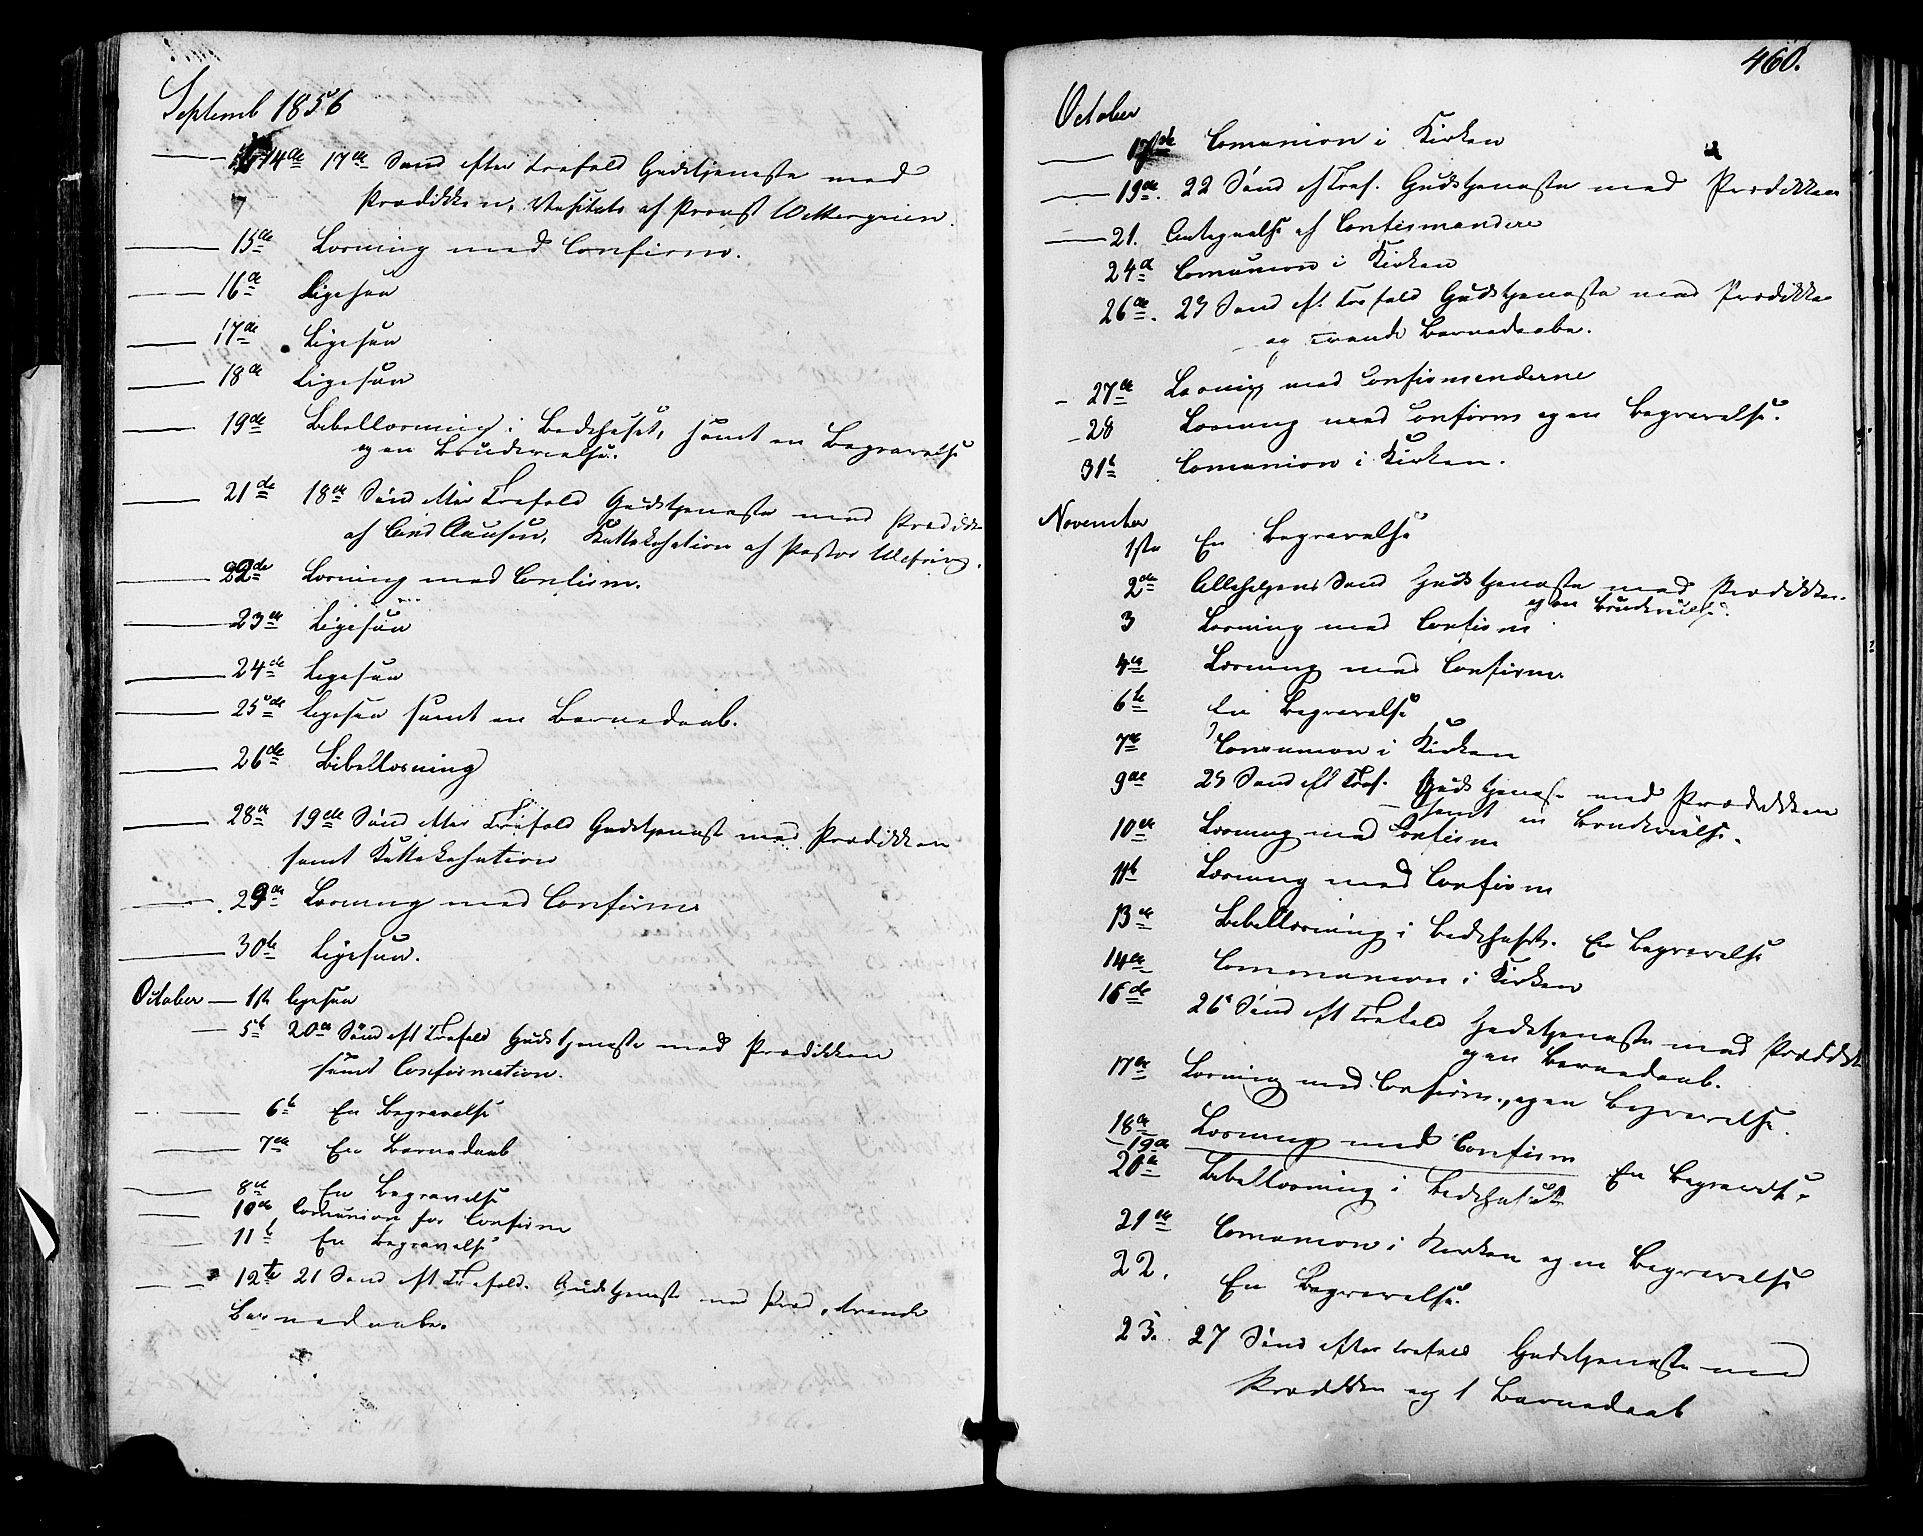 Septemb 1856
14de 17de Sønd efter Trefold Gudstjeneste med
Prædikken, Visitats af Provst
15de Læsning med Confirm.
16de Ligesaa
17de Ligesaa
18de Ligesaa
19de Bibellæsning i Bedehuset, samt en Begravelse
og en Brudevielse.
21de 18de Sønd efter Trefold Gudstjeneste med Prædikk
af Cand Clausen, Kattekesation af Pastor
22de Læsning med Confirm.
23de Ligesaa
24de Ligesaa
25de Ligesaa samt en Barnedaab.
26de Bibellæsning
28de 19de Sønd efter Trefold Gudstjenest med Prædikken
samt Kattekesation
29de Læsning med Confirm
30te Ligesaa.
October 1ste Ligesaa
5te 20de Sønd eft Trefold Gudstjeneste med Prædikken
samt Confirmation.
6te En Begravelse
7de En Barnedaab
8de En Begravelse
10de Comunion for Confirm
11te En Begravelse
12te 21 Sønd eft Trefold. Gudstjeneste med Præd, trende
Barnedaabe.
460.
October
17de Comunion i Kirken
19de. 22 Sønd ef Tref. Gudstjeneste med Prædikken
21. Antegnelse af Confirmandere
24d Comunion i Kirken
26de. 23 Sønd ef. Trefold Gudstjeneste med Prædikke
og trende Barnedaabe.
27de Læsning med Confirmanderne
28 Læsning med Confirm og en Begravelse.
31te Comunion i Kirken.
November
1ste En Begravelse
2de Allehelgens Sønd Gudstjeneste med Prædikke.
og en Brudevielse.
3 Læsning med Confirm
4de Læsning med Confirm.
6te En Begravelse
7de Comunion i Kirken
9de 25 Sønd eft Tref. Gudstjenest med Prædikken
samt en Brudevielse.
10de Læsning med Confirm
11te Læsning med Confirm
13de Bibellæsning i Bedehuset. En Begravelse
14de Communion i Kirken
16de 26 Sønd eft Trefold Gudstjeneste med Prædikk
og en Barnedaab.
17de Læsning med Confirm., og en Begravelse.
18de Læsning med Confirm
19de
20de Bibellæsning i Bedehuset En Begravelse.
21de Comunion i Kirken og en Begravelse
22. En Begravelse.
23. 27 Sønd efter Trefold Gudstjeneste med
Prædikken og 1 Barnedaab